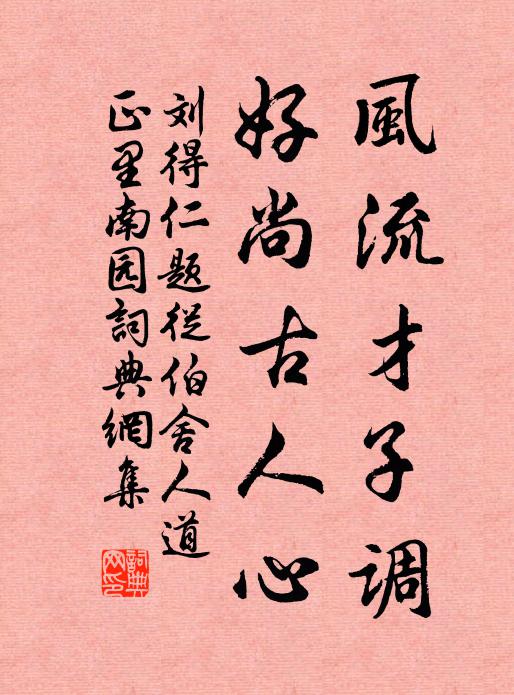 風流才子調
好尚古人心
刘得仁题從伯舍人道
正里南园詞典網集
詞典
网印